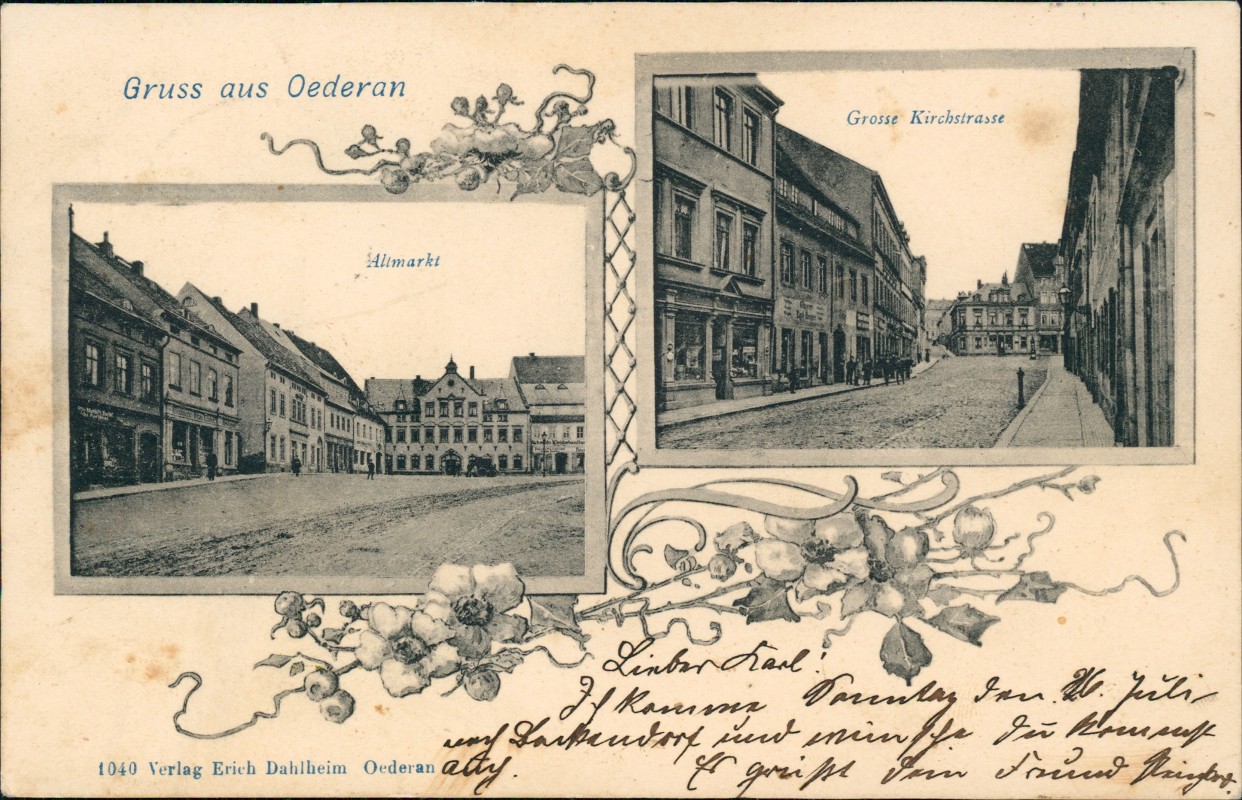 Gruss aus Oederan
Grosse Kirchstrasse
Altmarkt
Lieber Karl!
Ich komme Sonntag den 26. Juli
nach und wünsche du kommst
auch. Es grüßt dein Freund
1040 Verlag Erich Dahlheim Oederan